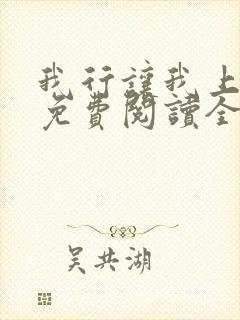 我行讓我上
免費閱讀全
吳共湖